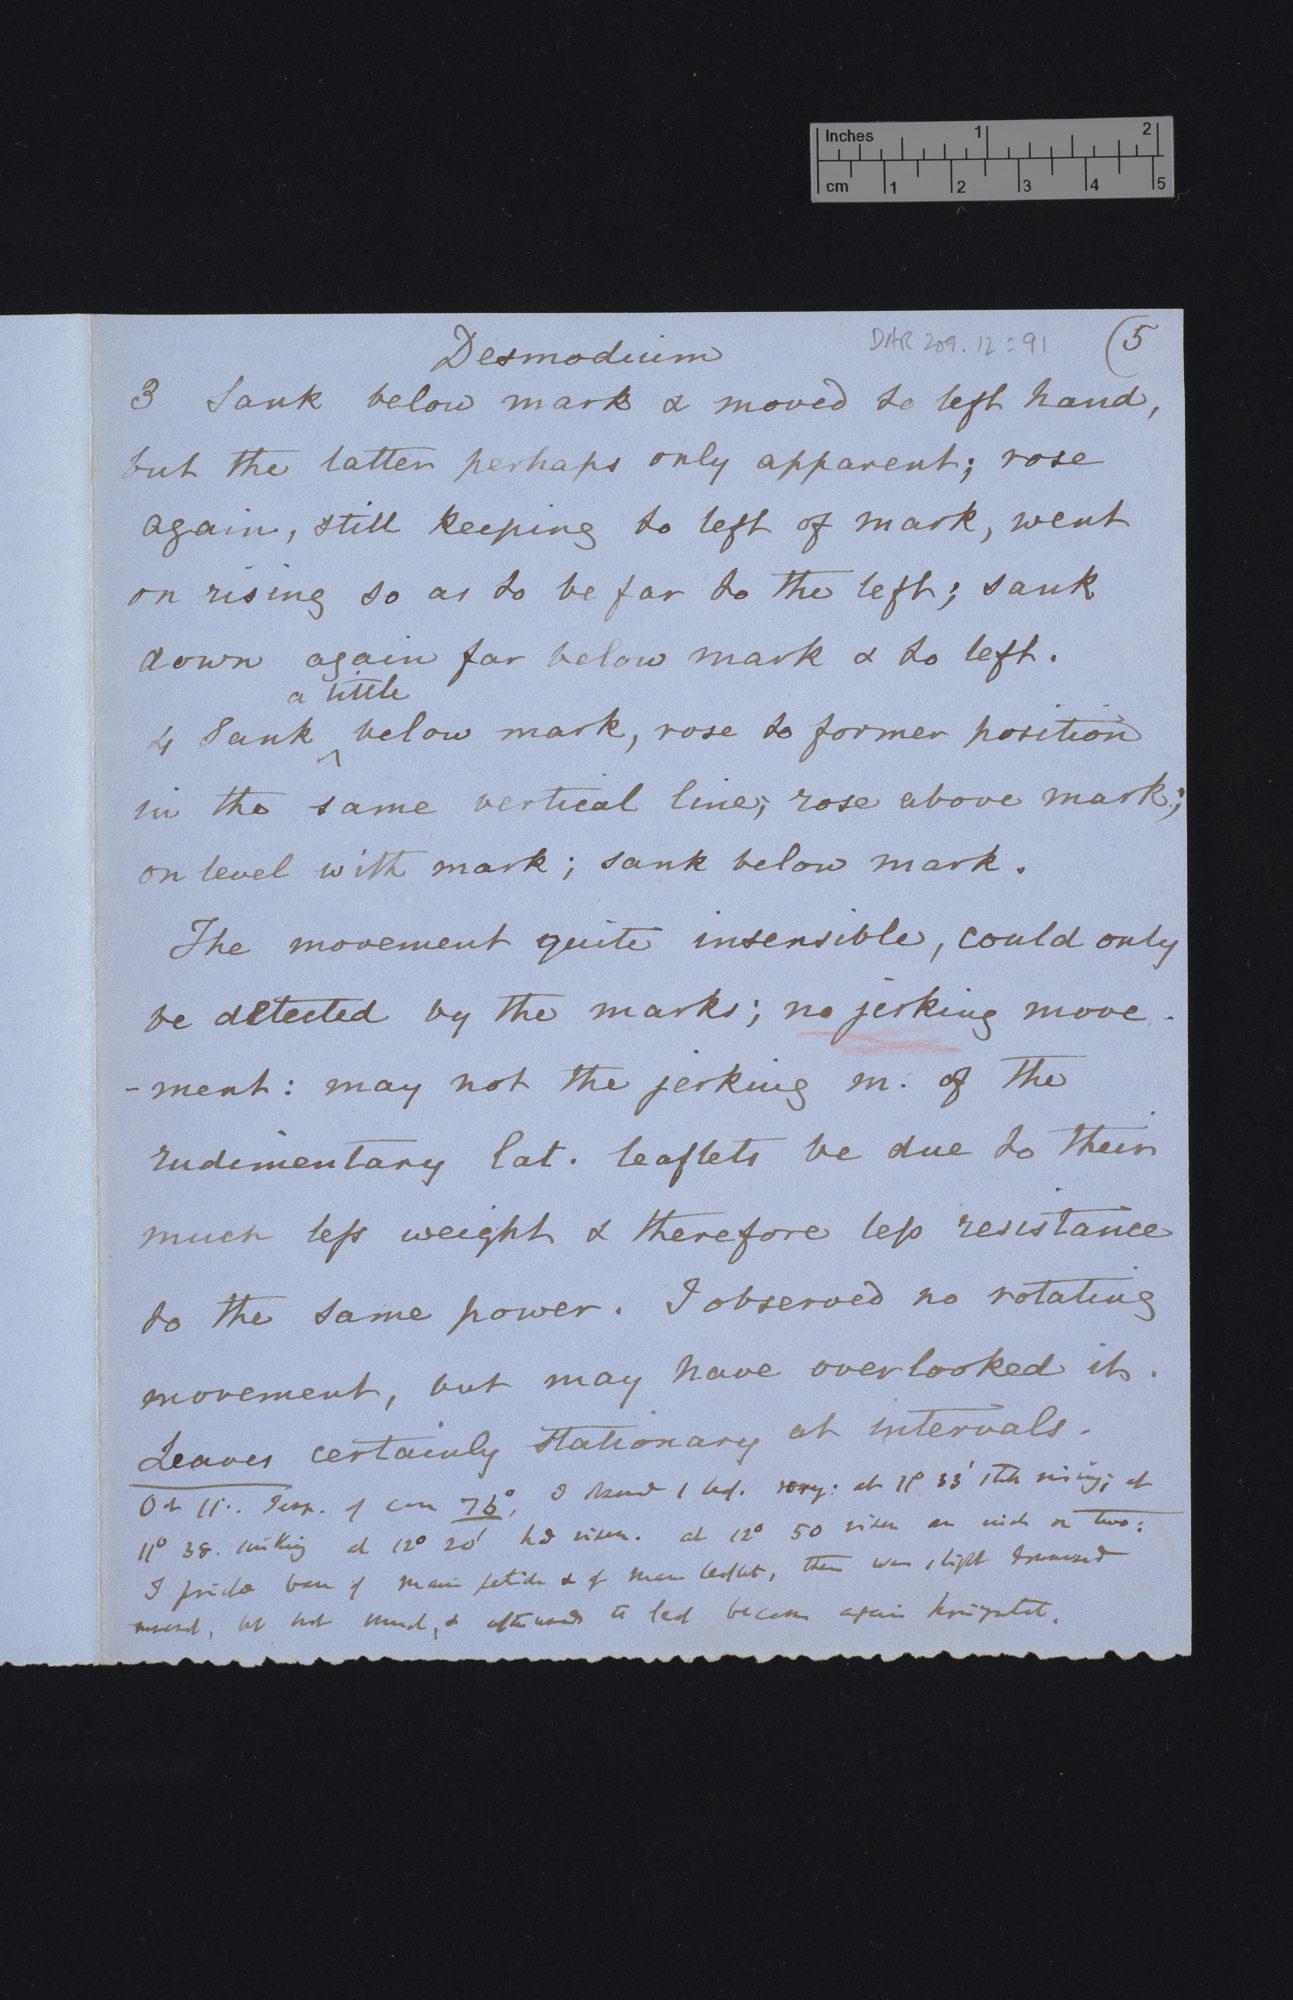 Inches 1 2
cm 1 2 3 4 5
Desmodium DAR 209.12:91 (5
3 Sank below mark & moved to left hand,
but the latter perhaps only apparent; rose
again, still keeping to left of mark, went
on rising so as to be far to the left; sank
down again far below mark & to left.
a little
4 Sank ^ below mark, rose to former position
in the same vertical line; rose above mark;
on level with mark; sank below mark.
The movement quite insensible, could only
be detected by the marks; no jerking move-
-ment: may not the jerking m. of the
rudimentary lat. leaflets be due to their
much less weight & therefore less resistance
to the same power. I observed no rotating
movement, but may have overlooked it.
Leaves certainly stationary at intervals.
Oct 11. Temp. of 76°, I 1 leaf. at 11° 33' rising; at
11° 38. sinking at 12° 20' had risen. at 12° 50 risen an inch or two:
I base of main petiole & of main leaflet, there was slight downward
but not much, & afterwards the leaf became again